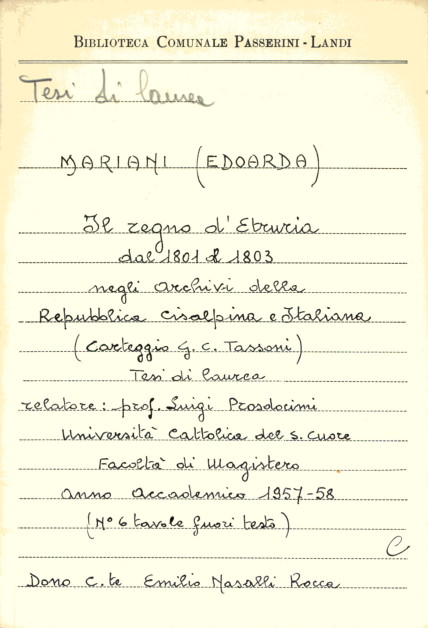 BIBLIOTECA COMUNALE PASSERINI - LANDI
Tesi di laurea
MARIANI (EDOARDA)
Il regno d'Etruria
dal 1801 al 1803
negli archivi della
Repubblica Cisalpina e Italiana
(Carteggio G. C. Tassoni)
Tesi di laurea
relatore: prof. Luigi Prosdocimi
Università Cattolica del S. Cuore
Facoltà di Magistero
anno accademico 1957-58
(N° 6 tavole fuori testo)
C
Dono C.te Emilio Nasalli Rocca